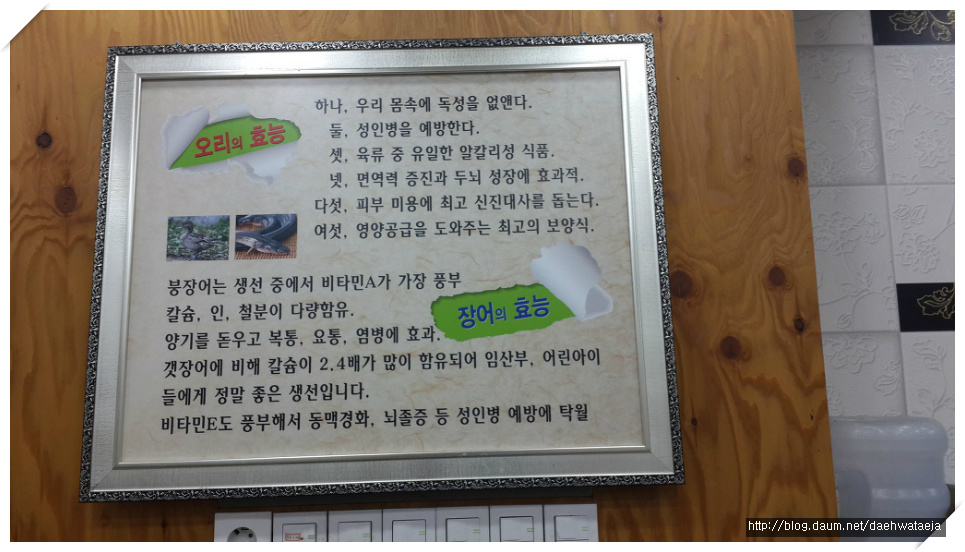 오리의 효능
하나, 우리 몸속에 독성을 없앤다.
둘, 성인병을 예방한다.
셋, 육류 중 유일한 알칼리성 식품.
넷, 면역력 증진과 두뇌 성장에 효과적.
다섯, 피부 미용에 최고 신진대사를 돕는다.
여섯, 영양공급을 도와주는 최고의 보양식.
장어의 효능
붕장어는 생선 중에서 비타민A가 가장 풍부
칼슘, 인, 철분이 다량함유.
양기를 돋우고 복통, 요통, 염병에 효과.
갯장어에 비해 칼슘이 2.4배가 많이 함유되어 임산부, 어린아이
들에게 정말 좋은 생선입니다.
비타민E도 풍부해서 동맥경화, 뇌졸증 등 성인병 예방에 탁월
http://blog.daum.net/daehwataeja